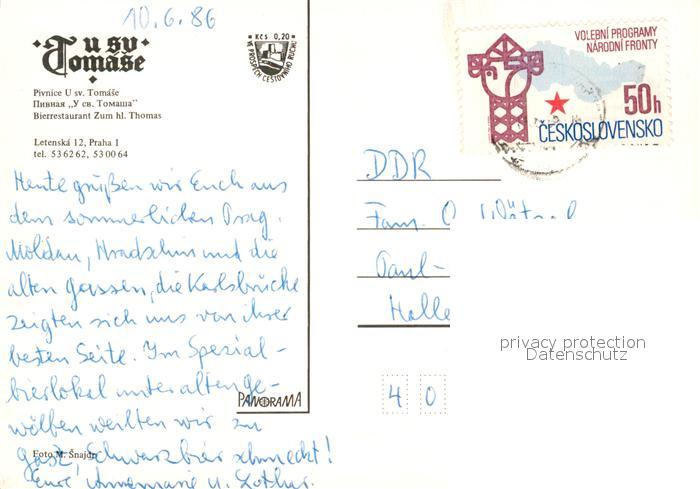 10.6.86
u sv.
Tomáše
Kčs 0,20
VE PROSPĚCH CESTOVNÍHO RUCHU
Pivnice U sv. Tomáše
Пивная „У св. Томаша"
Bierrestaurant Zum hl. Thomas
Letenská 12, Praha 1
tel. 53 62 62, 53 00 64
VOLEBNÍ PROGRAMY
NÁRODNÍ FRONTY
50h
ČESKOSLOVENSKO
Heute grüßen wir Euch aus
dem sommerlichen Prag.
Moldau, Hradschin und die
alten Gassen, die Karlsbrücke
zeigten sich uns von ihrer
besten Seite. Im Spezial-
bierlokal unter alten Ge-
wölben weilten wir zu
Gast, Schwarzbier schmeckt!
Eure Annemarie u. Lothar.
PANORAMA
Foto M. Šnajdr
DDR
Fam.
Paul-
Halle
40
privacy protection
Datenschutz